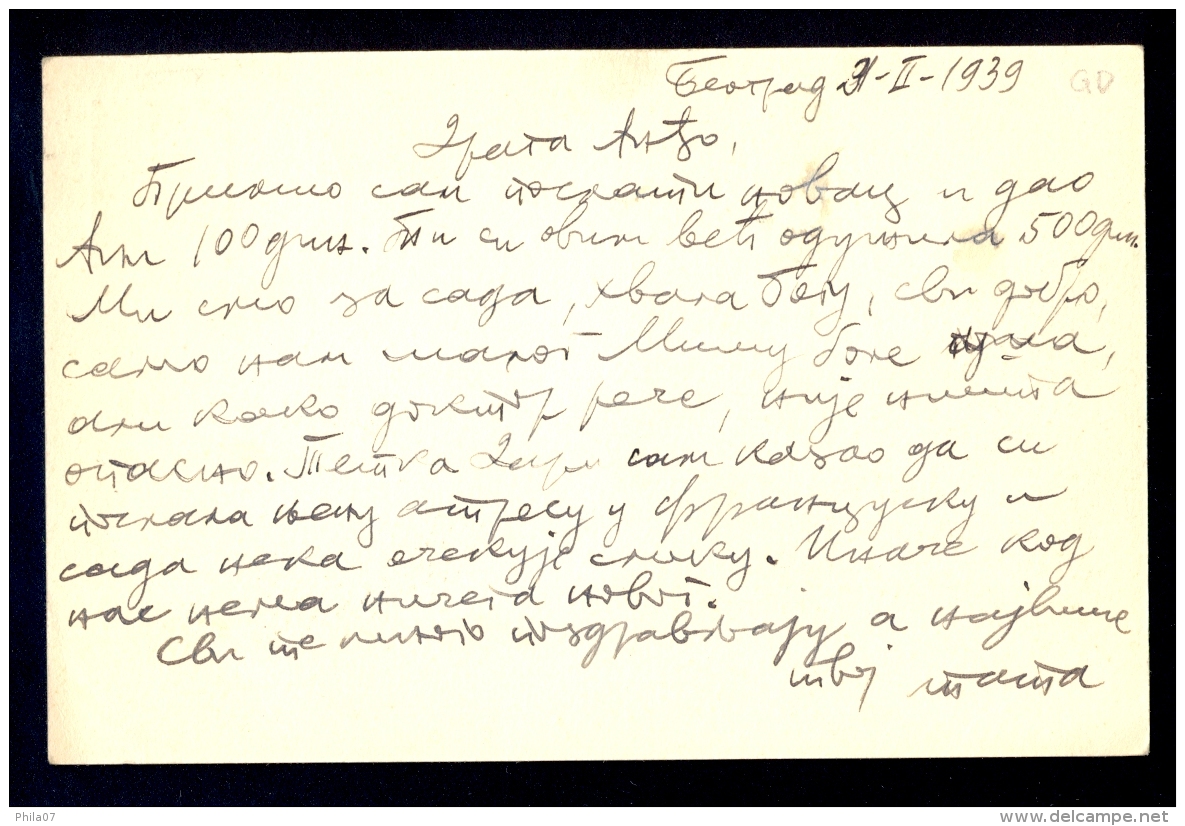 Београд 21-II-1939
GD
Драга Анђо,
Примио сам послати новац и дао
Ани 100 дин. Ти си овим већ одужила 500 дин.
Ми смо за сада, хвала Богу, сви добро,
само нам малог Мишу боле,
али како доктор рече, није ништа
опасно. Тетка сам казао да си
послала њену адресу у Француску и
сада нека очекује слику. Иначе код
нас нема ничега новог.
Сви те много поздрављају а највише
твој тата
Phila07
www.delcampe.net